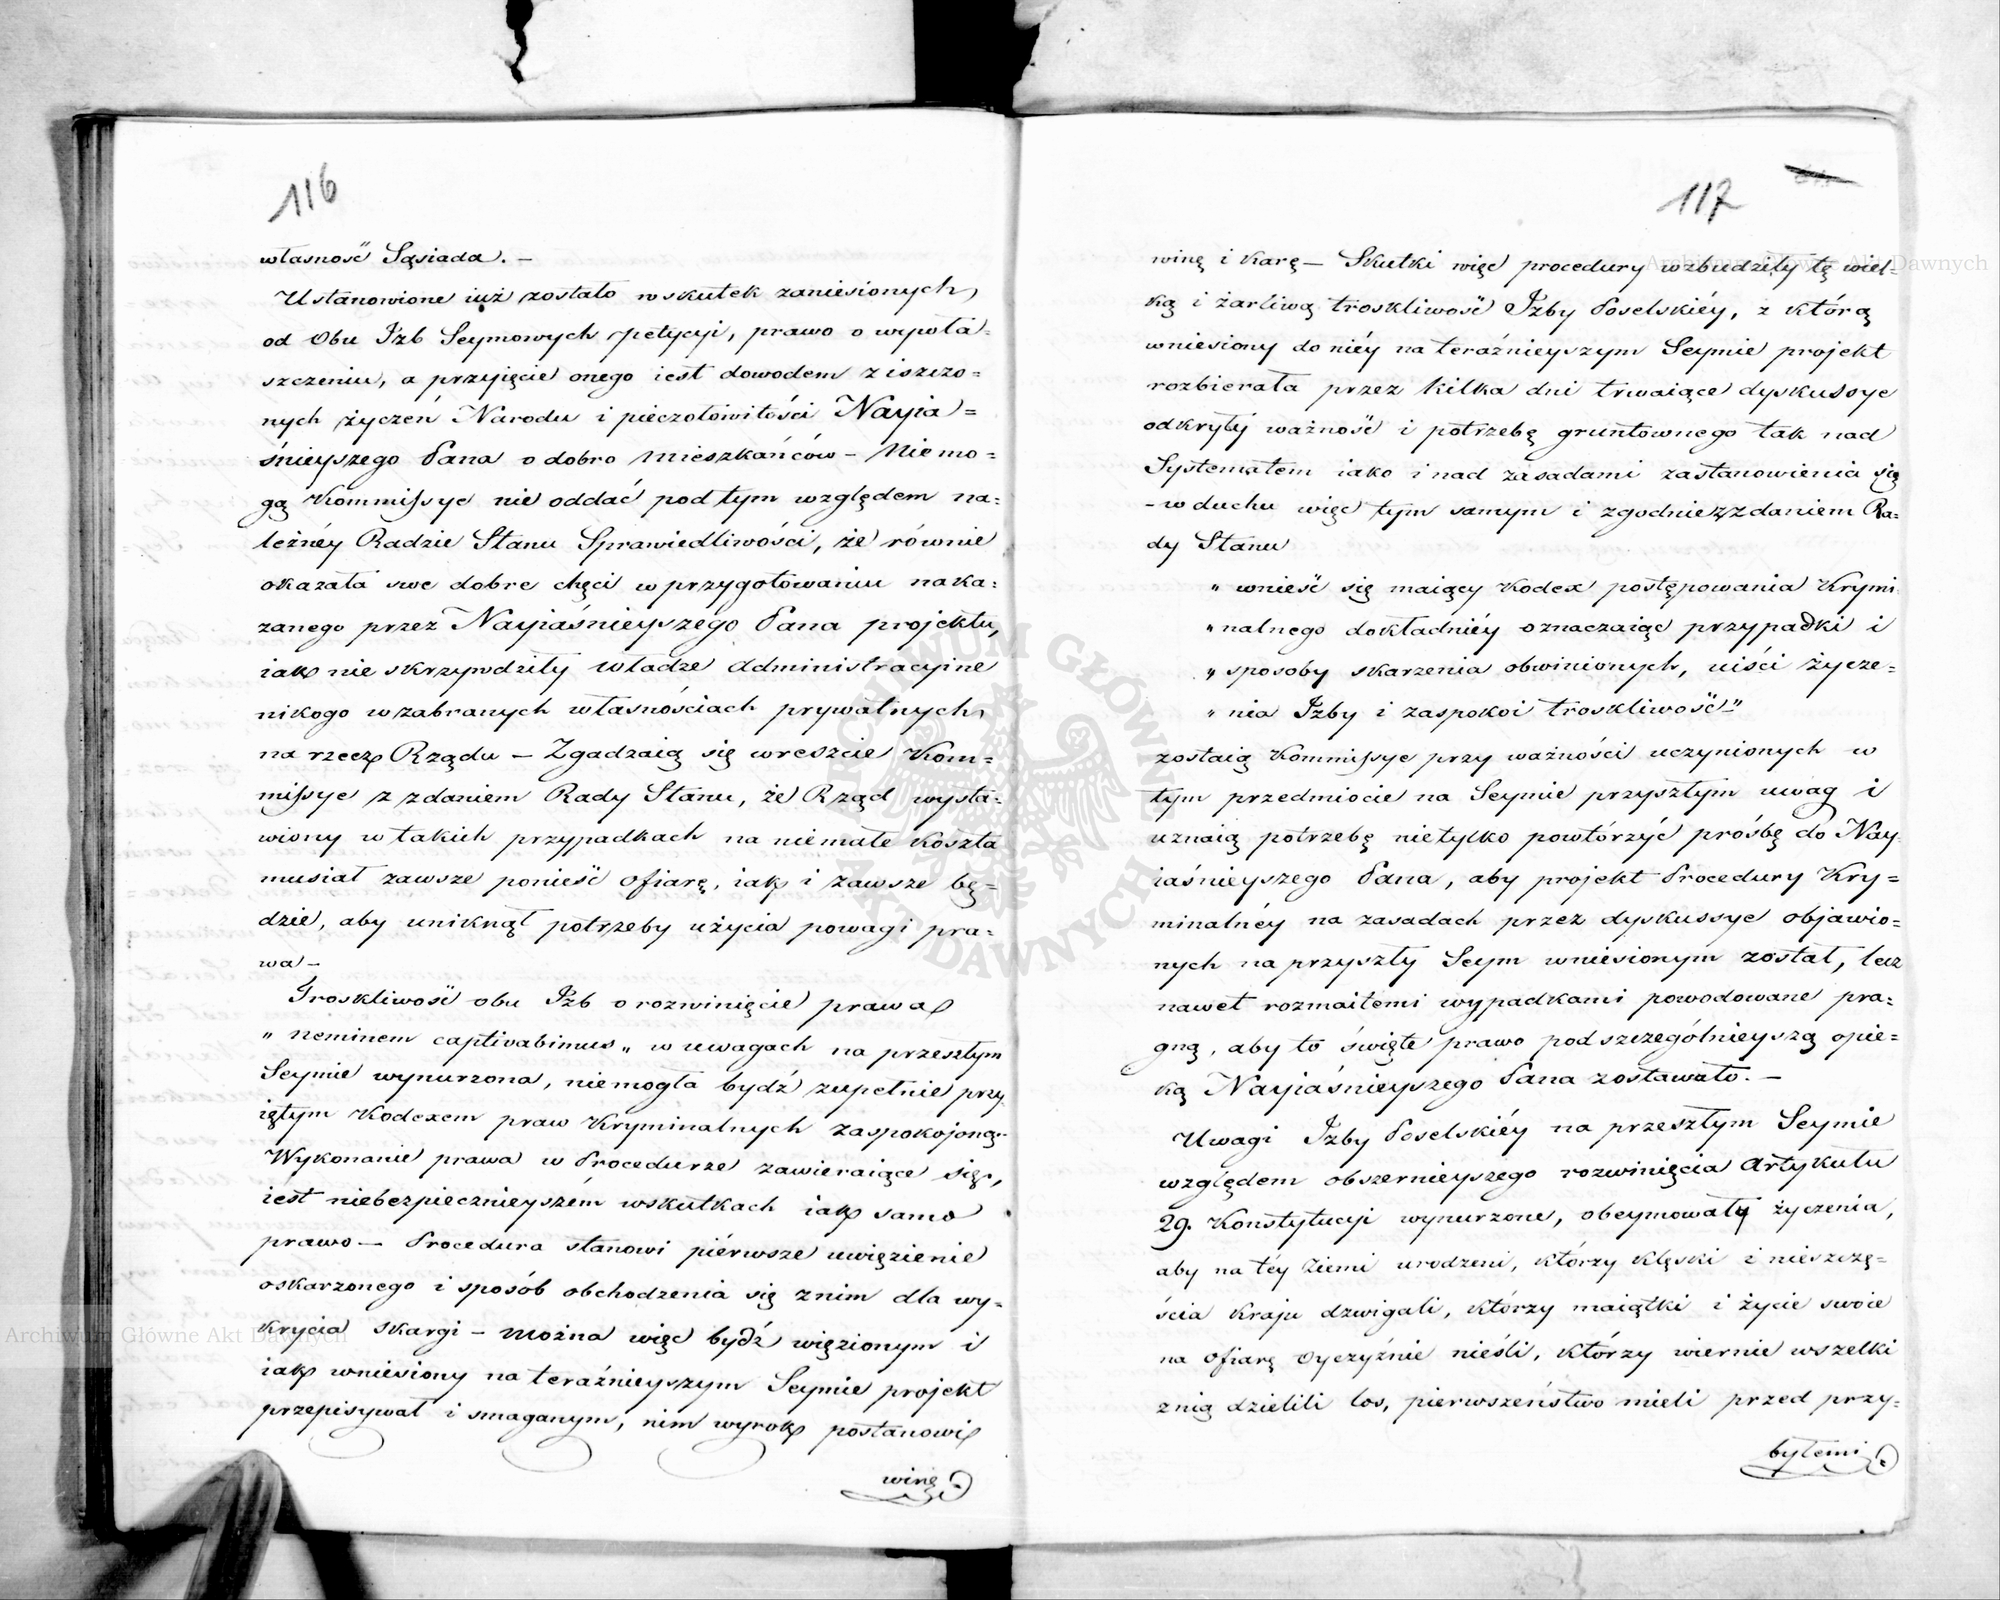 116
własność Sąsiada. —
Ustanowione iuż zostało wskutek zaniesionych
od Obu Izb Seymowych petycyi, prawo o wywła=
szczeniu, a przyięcie onego iest dowodem ziszczo=
nych życzeń Narodu i pieczołowitości Nayia=
śnieyszego Pana o dobro Mieszkańców — Niemo=
gą Kommissye nie oddać pod tym względem na=
leżnéy Radzie Stanu Sprawiedliwości, że równie
okazała swe dobre chęci w przygotowaniu naka=
zanego przez Nayiaśnieyszego Pana projektu,
iak nie skrzywdziły Władze Administracyine
nikogo w zabranych własnościach prywatnych
na rzecz Rządu — Zgadzaią się wreszcie Kom=
missye z zdaniem Rady Stanu, że Rząd wysta=
wiony w takich przypadkach na niemałe koszta
musiał zawsze ponieść ofiarę, iak i zawsze bę=
dzie, aby uniknął potrzeby użycia powagi pra=
wa —
Troskliwość obu Izb o rozwinięcie prawa
„ neminem captivabimus „ w uwagach na przeszłym
Seymie wynurzona, niemogła bydź zupełnie przy
iętym Kodexem praw Kryminalnych zaspokojoną.
Wykonanie prawa w Procedurze zawieraiące się,
iest niebezpiecznieyszém wskutkach iak samo
prawo — Procedura stanowi piérwsze uwięzienie
oskarzonego i sposób obchodzenia się znim dla wy=
krycia skargi — można więc bydź więzionym i
iak wniesiony na teraźnieyszym Seymie projekt
przepisywał i smaganym, nim wyrok postanowi
winę
117
winę i karę — Skutki więc procedury wzbudziły tę wiel=
ką i żarliwą troskliwość Izby Poselskiéy, z którą
wniesiony do niéy na teraźnieyszym Seymie projekt
rozbierała przez kilka dni trwaiące dyskussye
odkryły ważność i potrzebę gruntownego tak nad
Systematem iako i nad zasadami zastanowienia się
- w duchu więc tym samym i zgodnie z zdaniem Ra=
dy Stanu
„ wnieść się maiący Kodex postępowania Krymi
„ nalnego dokładniéy oznaczaiąc przypadki i
„ sposoby skarzenia obwinionych, uiści życze=
„ nia Izby i zaspokoi troskliwość — "
zostaią Kommissye przy ważności uczynionych w
tym przedmiocie na Seymie przyszłym uwag i
uznaią potrzebę nietylko powtórzyć prośbę do Nay
iaśnieyszego Pana, aby projekt Procedury Kry=
minalnéy na zasadach przez dyskussye objawio=
nych na przyszły Seym wniesionym został, lecz
nawet rozmaitemi wypadkami powodowane pra=
gną, aby to święte prawo pod szczególnieyszą opie=
ką Nayiaśnieyszego Pana zostawało. —
Uwagi Izby Poselskiéy na przeszłym Seymie
względem obszernieyszego rozwinięcia Artykułu
29. Konstytucyi wynurzone, obeymowały życzenia,
aby na téy Ziemi urodzeni, którzy klęski i nieszczę=
ścia Kraju dzwigali, którzy maiątki i życie swoie
na ofiarę Oyczyźnie nieśli, którzy wiernie wszelki
znią dzielili los, pierwszeństwo mieli przed przy=
byłemi
Archiwum Główne Akt Dawnych
Archiwum Główne Akt Dawnych
ARCHIWUM GŁÓWNE AKT DAWNYCH